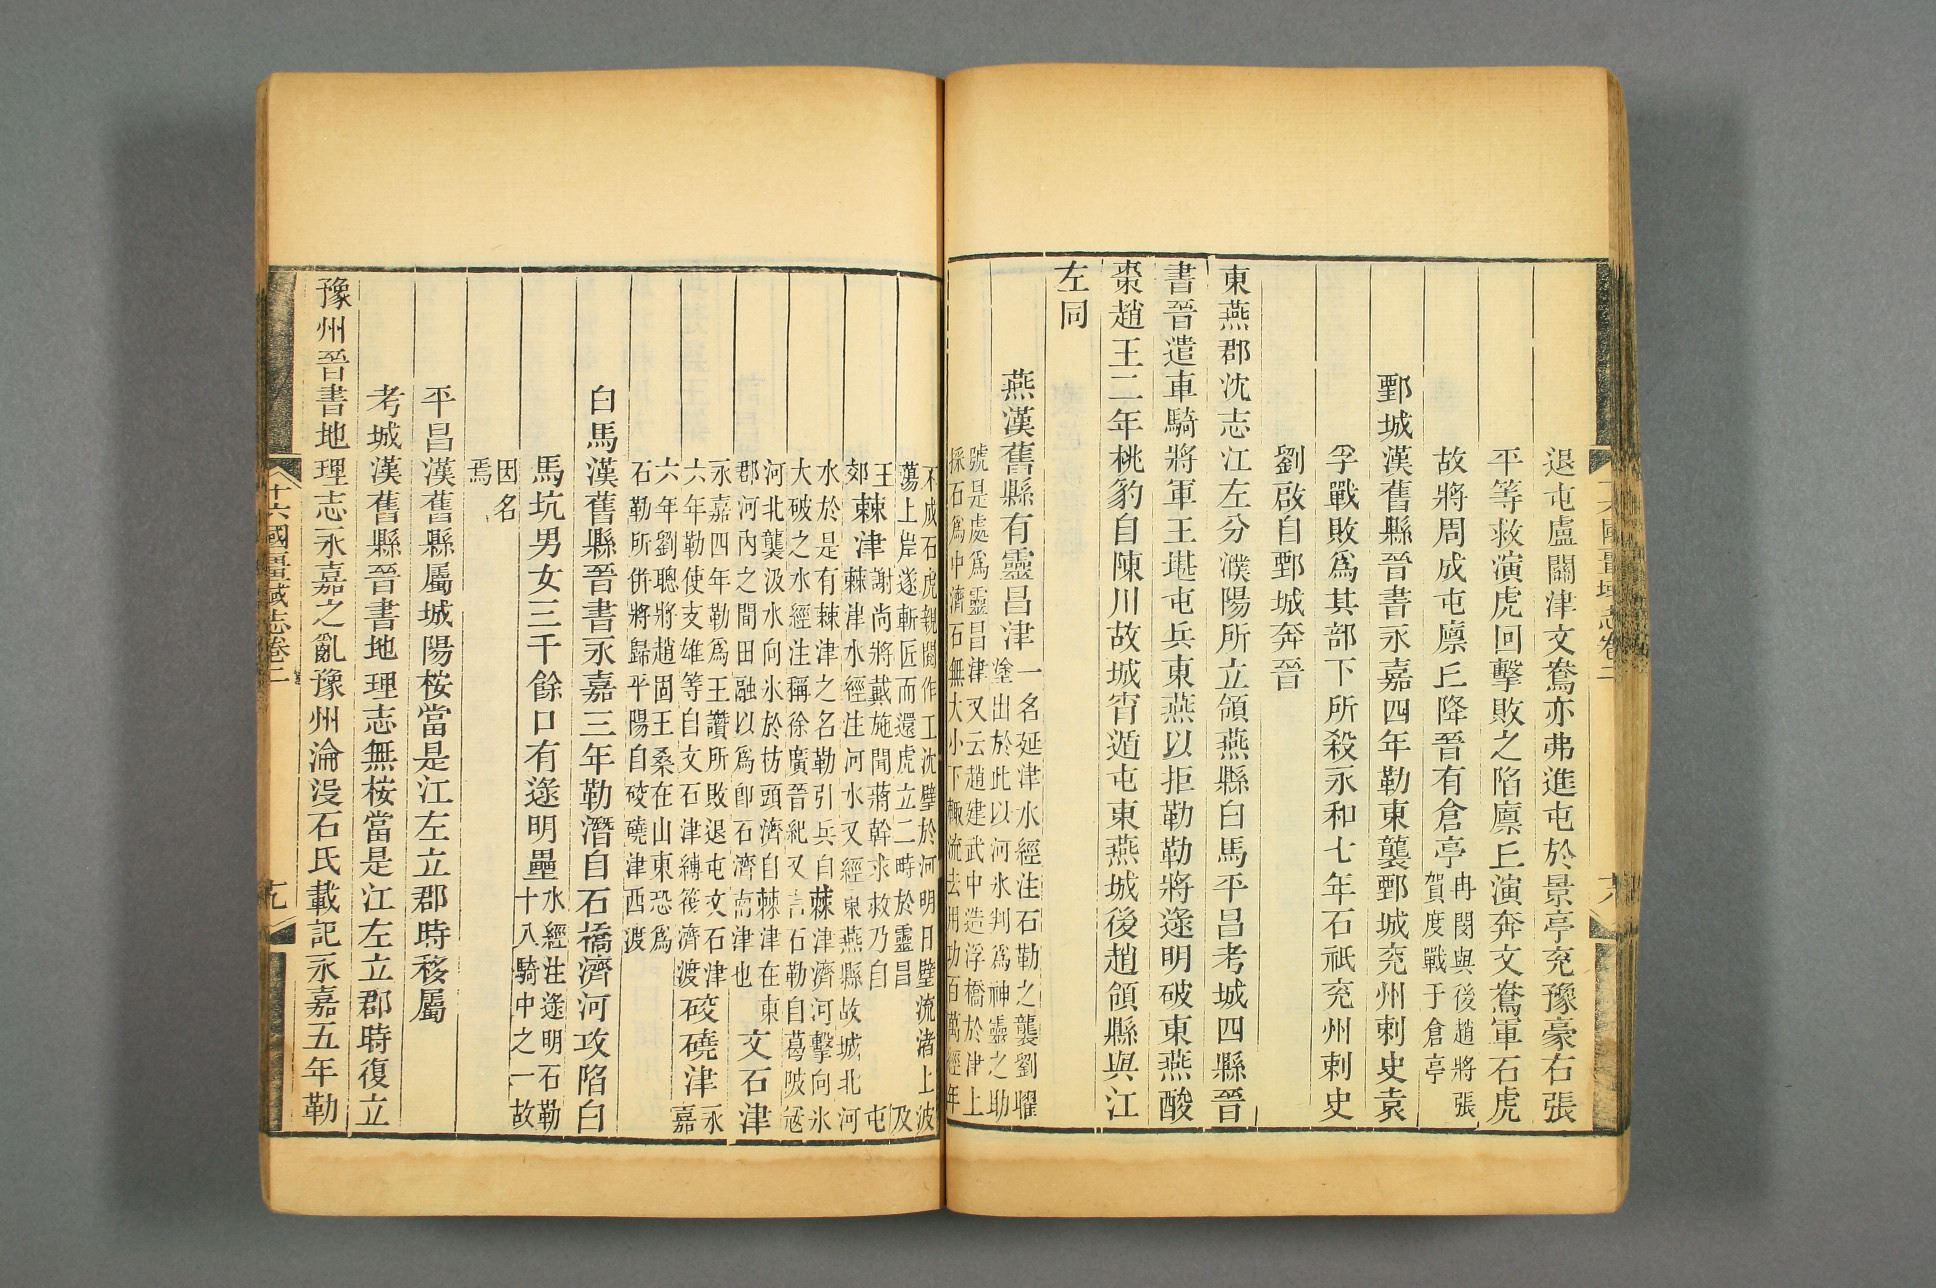 退屯盧關津文鴦亦弗進屯於景亭兖豫豪右張
平等救演虎回擊敗之陷廪丘演奔文鴦軍石虎
故將周成屯廪丘降晉有倉亭
冉閔與後趙將張
賀度戰于倉亭
鄄城漢舊縣晉書永嘉四年勒東襲鄄城兖州刺史袁
孚戰敗爲其部下所殺永和七年石祇兖州刺史
劉啟自鄄城奔晉
東燕郡沈志江左分濮陽所立領燕縣白馬平昌考城四縣晉
書晉遣車騎將軍王堪屯兵東燕以拒勒勒將逯明破東燕酸
棗趙王二年桃豹自陳川故城宵遁屯東燕城後趙領縣與江
左同
燕漢舊縣有靈昌津
一名延津水經注石勒之襲劉曜
塗出於此以河氷判爲神靈之助
號是處爲靈昌津又云趙建武中造浮橋於津上
採石爲中濟石無大小下輙流去用功百萬經年
不成石虎親閱作工沈璧於河明日璧流渚上波
蕩上岸遂斬匠而還虎立二時於靈昌
及
王
謝尚將戴施聞蔣幹求救乃自
屯
郊
棘津
棘津水經注河水又經東燕縣故城北河
水於是有棘津之名勒引兵自棘津濟河擊向氷
大破之水經注稱徐廣晉紀又言石勒自葛陂寇
河北襲汲水向氷於枋頭濟自棘津在東
郡河內之間田融以爲卽石濟南津也
文石津
永嘉四年勒爲王讚所敗退屯文石津
六年勒使支雄等自文石津縛筏濟渡
碻磽津
永
嘉
六年劉聰將趙固王桑在山東恐爲
石勒所併將歸平陽自碻磽津西渡
白馬漢舊縣晉書永嘉三年勒潛自石橋濟河攻陷白
馬坑男女三千餘口有逯明壘
水經注逯明石勒
十八騎中之一故
因名
焉
平昌漢舊縣屬城陽桉當是江左立郡時移屬
考城漢舊縣晉書地理志無桉當是江左立郡時復立
豫州晉書地理志永嘉之亂豫州淪沒石氏載記永嘉五年勒
十六國疆域志卷二